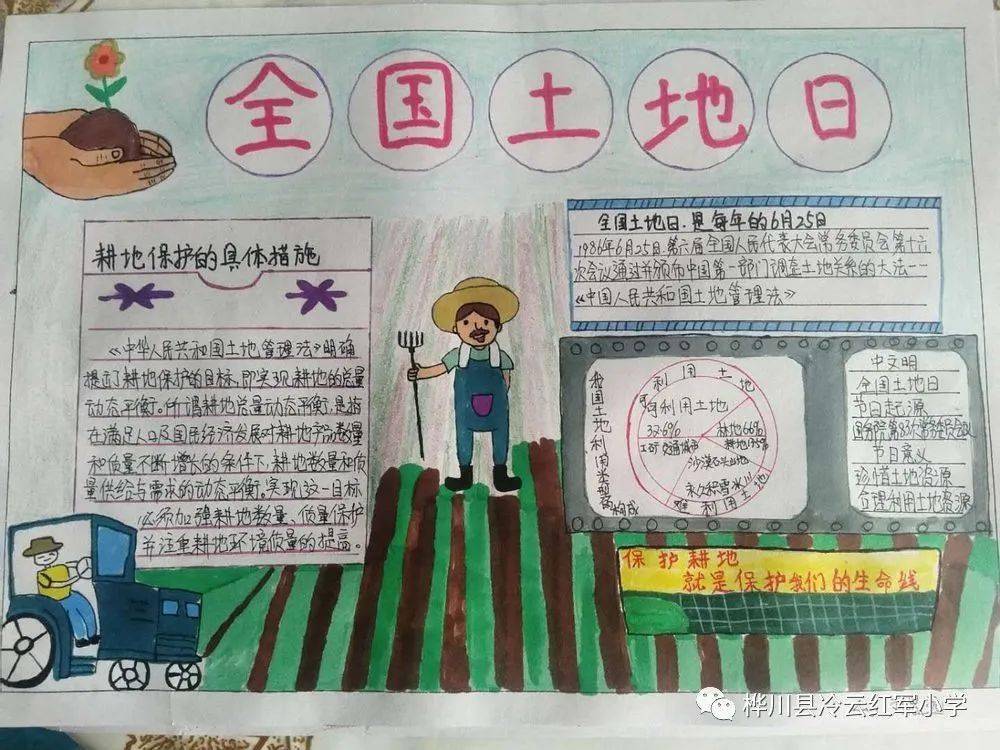 全国土地日
耕地保护的具体措施
《中华人民共和国土地管理法》明确
提出了耕地保护的目标,即实现耕地的总量
动态平衡。所谓耕地总量动态平衡,是指
在满足人口及国民经济发展对耕地产品数量
和质量不断增长的条件下,耕地数量和质
量供给与需求的动态平衡。实现这一目标
必须加强耕地数量、质量保护
并注重耕地环境质量的提高。
全国土地日.是每年的6月25日
1986年6月25日.第六届全国人民代表大会常务委员会第十六
次会议通过并颁布中国第一部门调查土地关系的大法——
《中国人民共和国土地管理法》
我国土地利用类型的构成
可利用土地
可利用土地
32.6%
林地66%
工矿交通城市
沙漠石头山地
永久积雪冰川
难利用土地
中文明
全国土地日
节日起源
国务院第83次常务委员会议
节日意义
珍惜土地资源
合理利用土地资源
保护耕地
就是保护我们的生命线
桦川县冷云红军小学